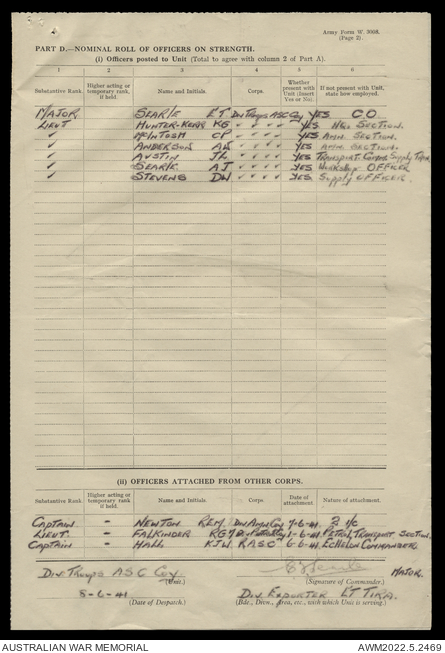 Army Form W. 3008.
(Page 2).
PART D.—NOMINAL ROLL OF OFFICERS ON STRENGTH.
(i) Officers posted to Unit (Total to agree with column 2 of Part A).
1 2 3 4 5 6
Substantive Rank. Higher acting or temporary rank, if held. Name and Initials. Corps. Whether present with Unit (Insert Yes or No). If not present with Unit, state how employed.
MAJOR SEARLE ET Div Troops ASC Coy YES C.O.
LIEUT HUNTER-KERR KG " " " " YES Hqs SECTION.
" McINTOSH CP " " " " YES AMN. SECTION.
" ANDERSON " " " " YES AMN. SECTION.
" AUSTIN JL " " " " YES TRANSPORT Supply
" SEARLE AJ " " " " YES Workshop OFFICER
" STEVENS DW " " " " YES Supply OFFICER.
(ii) OFFICERS ATTACHED FROM OTHER CORPS.
Substantive Rank. Higher acting or temporary rank if held. Name and Initials. Corps. Date of attachment. Nature of attachment.
CAPTAIN - NEWTON REM Div Amn Coy 7-6-41 2 i/c
LIEUT. - FALKINDER RG Div Petrol Coy 1-6-41 PETROL TRANSPORT SECTION.
CAPTAIN - HALL KJW RASC 6-6-41 ECHELON COMMANDER
Div Troops ASC Coy MAJOR.
(Unit.) (Signature of Commander.)
8-6-41 ET TIRA.
(Date of Despatch.) (Bde., Divn., Area, etc., with which Unit is serving.)
AUSTRALIAN WAR MEMORIAL AWM2022.5.2469